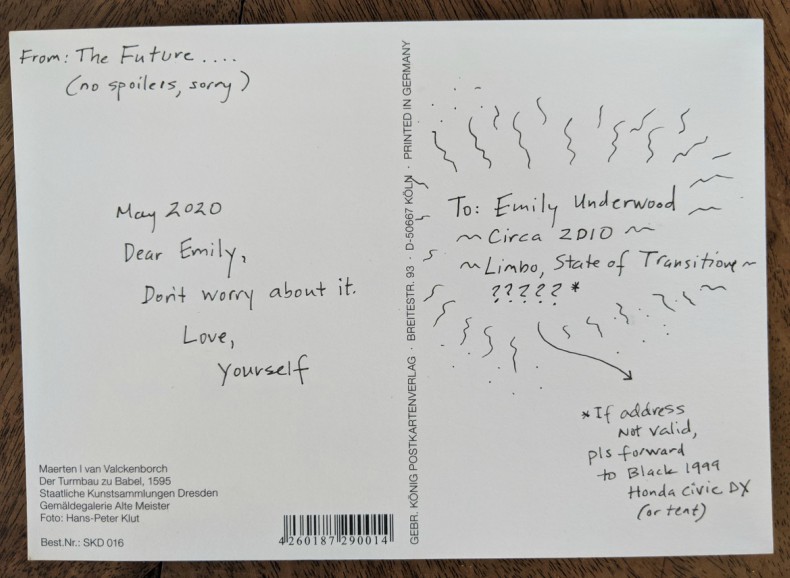 From: The Future ....
(no spoilers, sorry)
May 2020
Dear Emily,
Don't worry about it.
Love,
Yourself
Maerten I van Valckenborch
Der Turmbau zu Babel, 1595
Staatliche Kunstsammlungen Dresden
Gemäldegalerie Alte Meister
Foto: Hans-Peter Klut
Best.Nr.: SKD 016
4 260187 290014
GEBR. KÖNIG POSTKARTENVERLAG · BREITESTR. 93 · D-50667 KÖLN · PRINTED IN GERMANY
To: Emily Underwood
~ Circa 2010 ~
~ Limbo, State of Transition ~
????? *
* If address
not valid,
pls forward
to Black 1999
Honda Civic DX
(or tent)